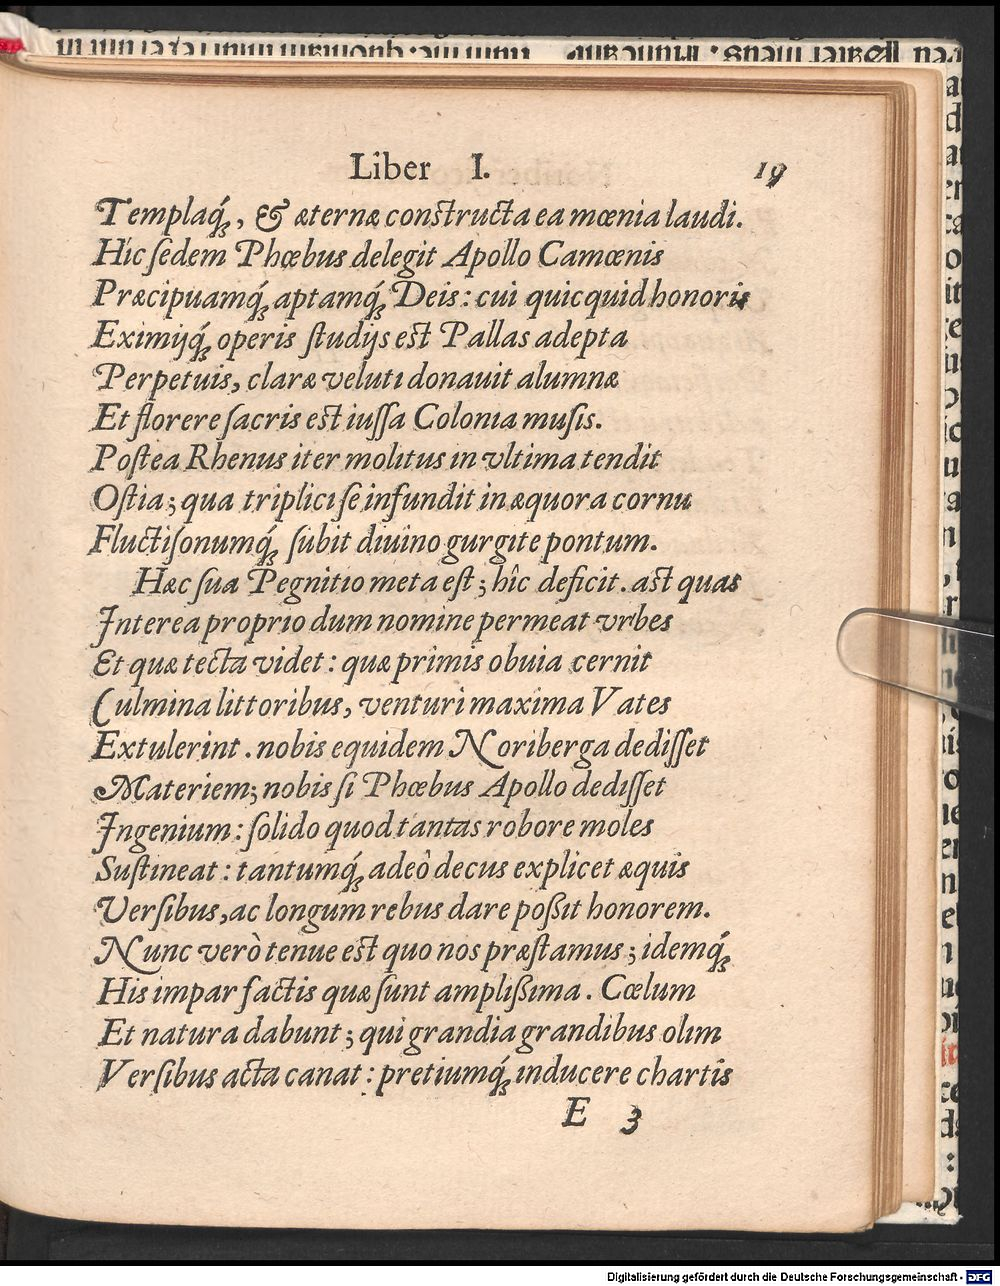 Liber I. 19
Templaq́;, & æternæ constructa ea mœnia laudi.
Hîc sedem Phœbus delegit Apollo Camœnis
Præcipuamq́; aptamq́; Deis: cui quicquid honoris
Eximijq́; operis studijs est Pallas adepta
Perpetuis, claræ veluti donauit alumnæ
Et florere sacris est iussa Colonia musis.
Postea Rhenus iter molitus in vltima tendit
Ostia; qua triplici se infundit in æquora cornu
Fluctisonumq́; subit diuino gurgite pontum.
Hæc sua Pegnitio meta est; hîc deficit. ast quas
Interea proprio dum nomine permeat vrbes
Et quæ tecta videt: quæ primis obuia cernit
Culmina littoribus, venturi maxima Vates
Extulerint. nobis equidem Noriberga dedisset
Materiem; nobis si Phœbus Apollo dedisset
Ingenium: solido quod tantas robore moles
Sustineat: tantumq́; adeò decus explicet æquis
Versibus, ac longum rebus dare poßit honorem.
Nunc verò tenue est quo nos præstamus; idemq́;
His impar factis quæ sunt amplißima. Cœlum
Et natura dabunt; qui grandia grandibus olim
Versibus acta canat: pretiumq́; inducere chartis
E 3
Digitalisierung gefördert durch die Deutsche Forschungsgemeinschaft - DFG